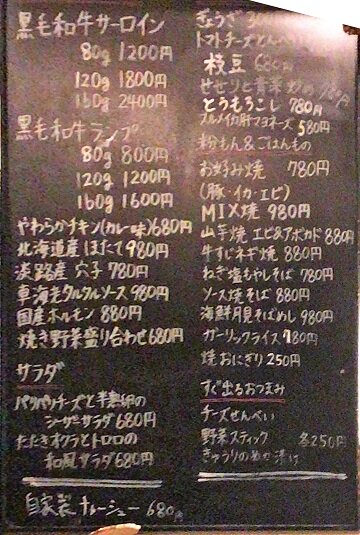 黒毛和牛サーロイン
80g 1200円
120g 1800円
160g 2400円
黒毛和牛ランプ
80g 800円
120g 1200円
160g 1600円
やわらかチキン(カレー味)680円
北海道産 ほたて 980円
淡路産 穴子 780円
車海老タルタルソース 980円
国産ホルモン 880円
焼き野菜盛り合わせ 680円
サラダ
パリパリチーズと半熟卵の
シーザーサラダ 680円
たたきオクラとトロロの
和風サラダ 680円
自家製チャーシュー 680円
トマトチーズ
枝豆 680円
せせりと青菜炒め
とうもろこし 780円
スルメイカ肝マヨネーズ 580円
粉もん&ごはんもの
お好み焼 780円
(豚・イカ・エビ)
MIX焼 980円
山芋焼 エビ&アボカド 880円
牛すじネギ焼 880円
ねぎ塩もやしそば 780円
ソース焼そば 880円
海鮮月見そばめし 980円
ガーリックライス 780円
焼おにぎり 250円
すぐ出るおつまみ
チーズせんべい
野菜スティック 各250円
きゅうりの